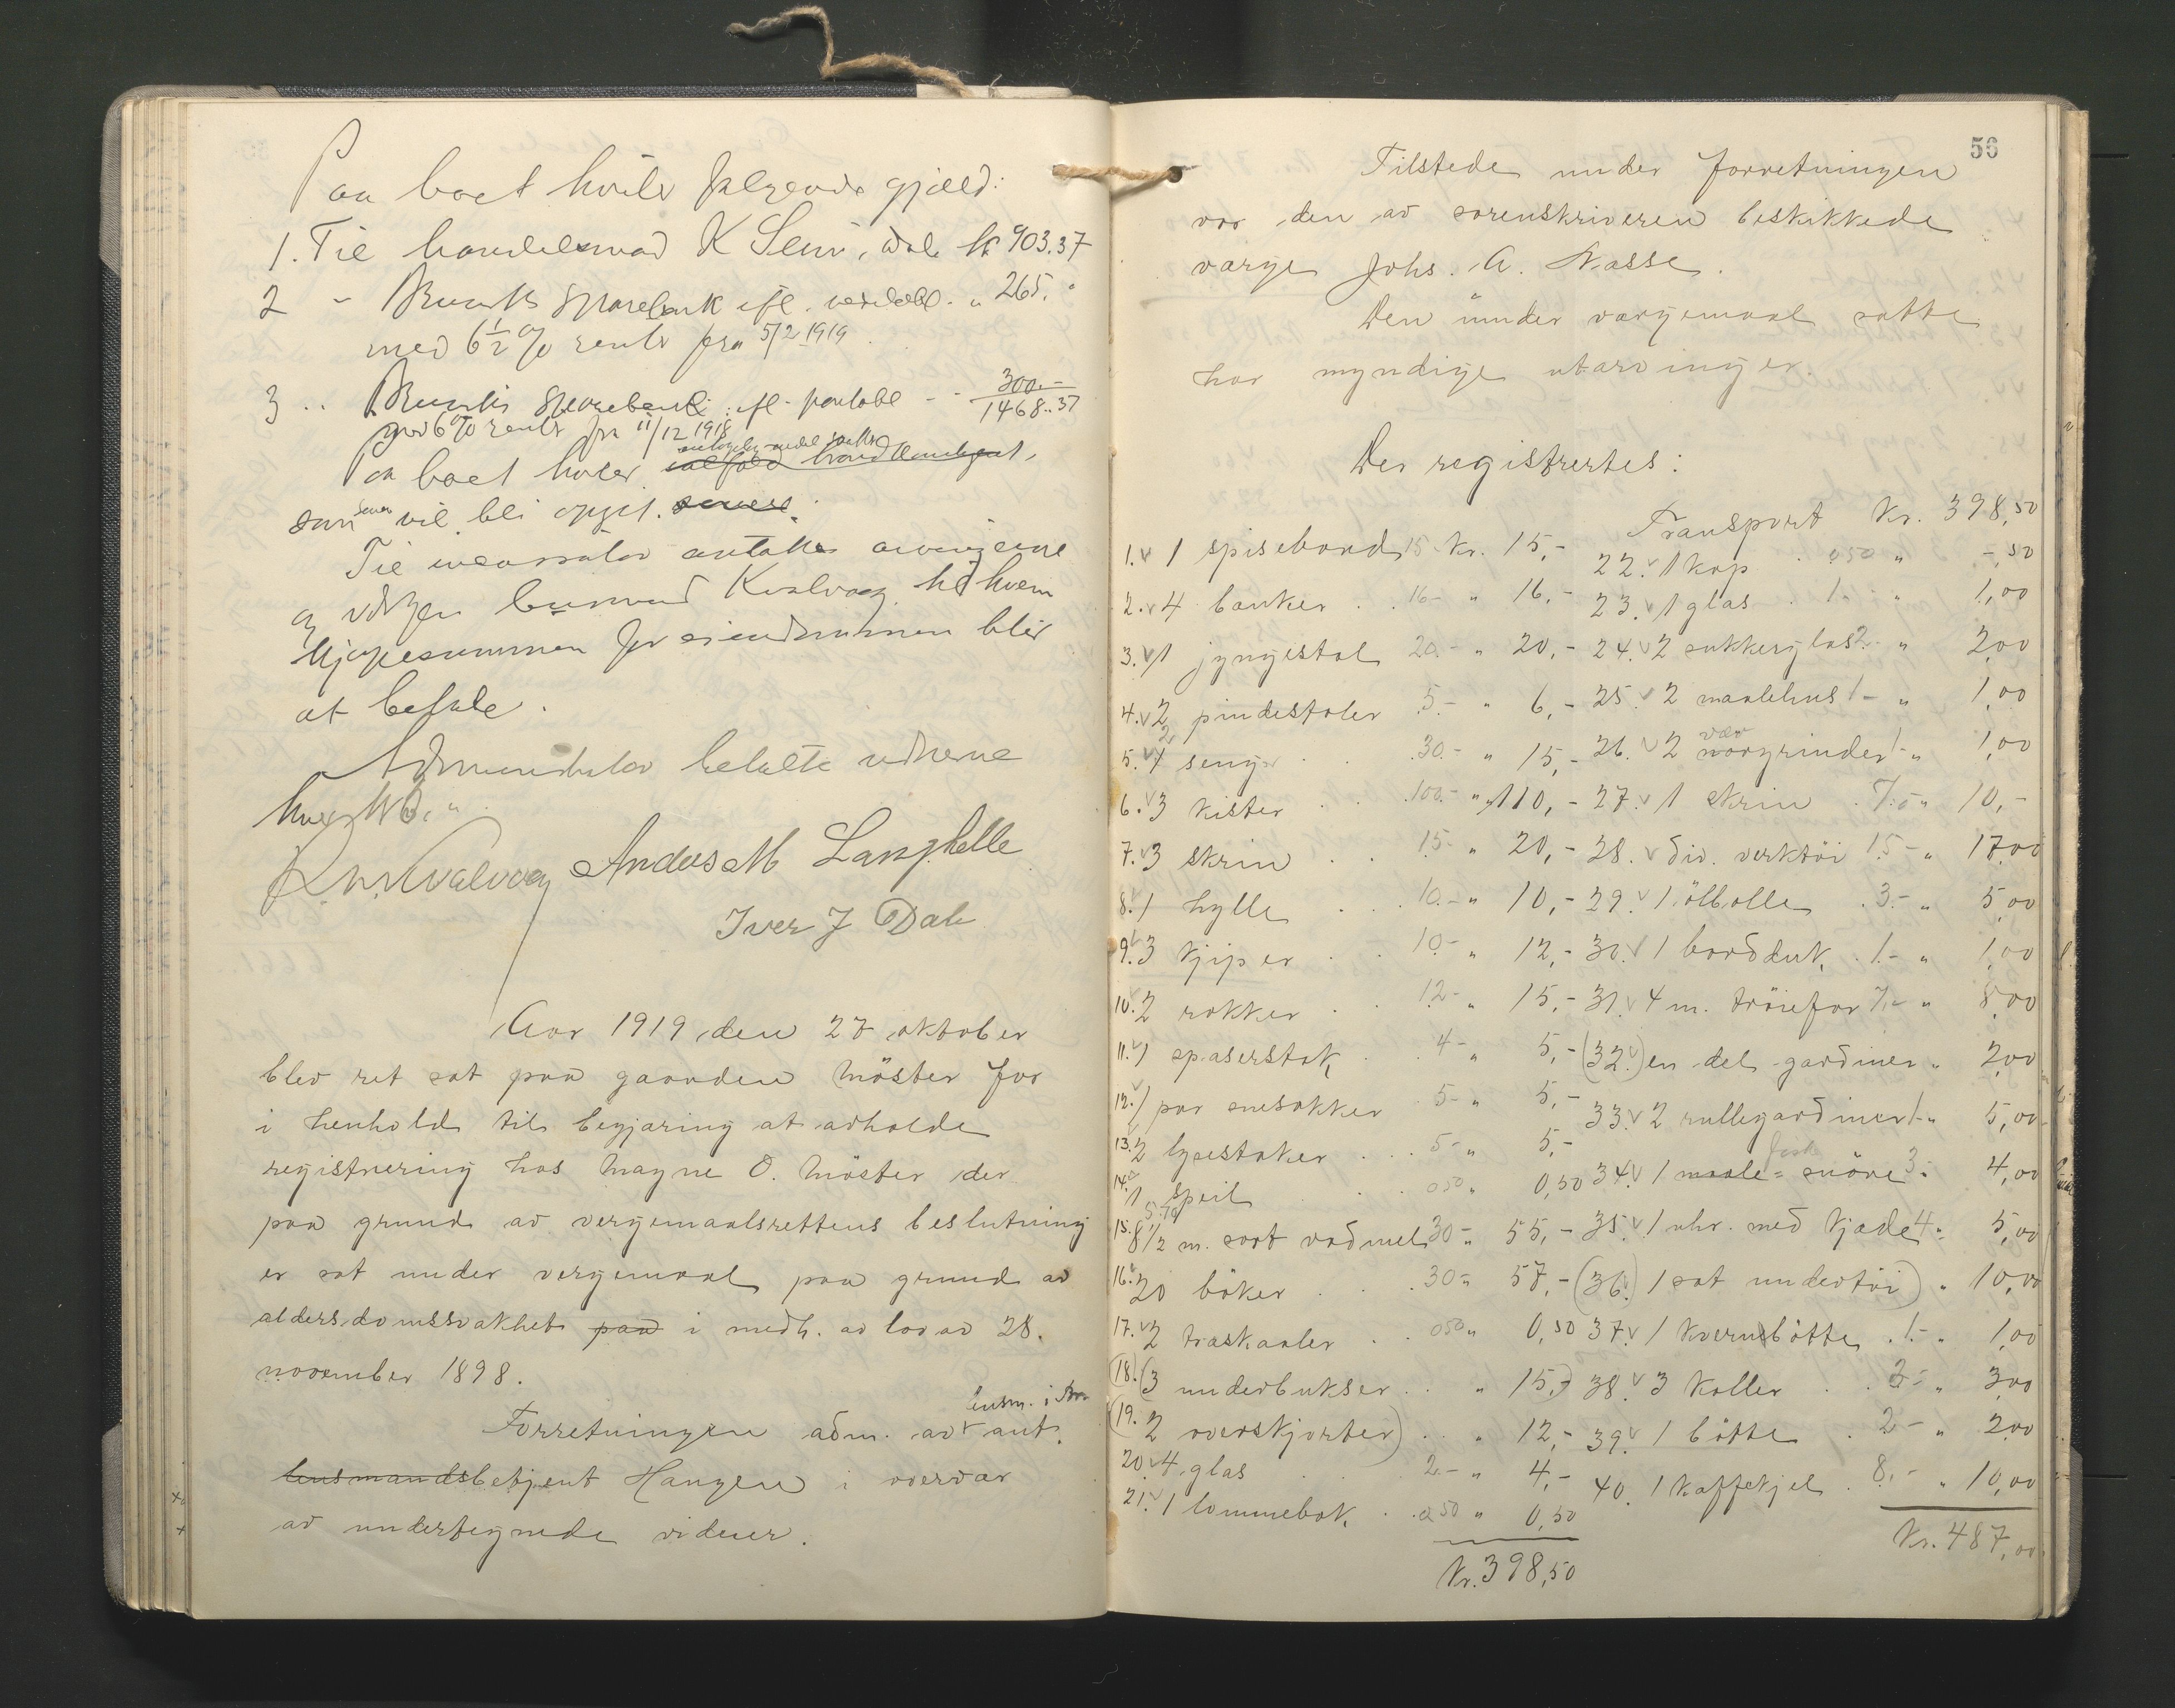 Paa boet hviler følgende gjæld:
1. Til handelsmand K Seim, Dale kr 903.37
2 " Bruvik Sparebank ifl. vekselobl. " 265."
med 6½ % rente fra 5/2 1919
3 " Bruvik Sparebank ifl. panteobl - - 300.-
1468.37
med 6% rente fra 11/12 1918
Paa boet hviler
som senere vil bli opgit. senere.
Til incassator antokes arvingerne
og vergen lensmand Kvalvaag til hvem
kjøpesummen for eiendommen blir
at betale.
Administrator betalte vidnerne
hver kr
K. N. Kvalvaag Anders M Langhelle
Iver J Dale
Aar 1919 den 27 oktober
blev ret sat paa gaarden Möster for
i henhold til begjæring at avholde
registrering hos Magne O. Möster der
paa grund av vergemaalsrettens beslutning
er sat under vergemaal paa grund av
alderdomssvakhet paa i medh. av lov av 28.
november 1898.
Forretningen adm. av lensm. i Bru
aut.
lensmandsbetjent Haugen i overvær
av undertegnede vidner.
56
Tilstede under forretningen
var den av sorenskriveren beskikkede
værge Johs. A. Nasse.
Den under værgemaal satte
har myndige utarvinger.
Der registrertes:
1. 1 spisebord 15.- kr. 15,-
2. 4 bænker . . 16.- " 16,-
3. 1 gyngestol 20.- " 20,-
4. 2 pindestoler 5.- " 6,-
5. 2 senger . . 30.- " 15,-
6. 3 kister . . 100.- " 110,-
7. 3 skrin . . 15.- " 20,-
8. 1 hylle . . 10.- " 10,-
9. 3 kjiper . . 10.- " 12,-
10. 2 rokker . 12.- " 15,-
11. 1 spaserstok . 4.- " 5,-
12. 1 par snesokker 5.- " 5,-
13. 2 lysestaker . . . 5.- " 5,-
14. 1 speil . . 0 50 " 0,50
15. 8 1/2 m. sort vadmel 30.- " 55,-
16. 20 böker . . . 30.- " 57,-
17. 2 træskaaler . . 0 50 " 0,50
(18.) (3 underbukser . . " 15,-)
(19. 2 overskjorter) . . " 12,-
20. 4 glas 2.- " 4,-
21. 1 lommebok . . 0 50 " 0,50
Kr. 398,50
Transport Kr. 398,50
22. 1 kop . . 0 50 " -,50
23. 1 glas . 1.- " 1,00
24. 2 sukkerglas 2.- " 2,00
25. 2 maalehus 1.- " 1,00
26. 2 væv norgrinder 1.- " 1,00
27. 1 skrin . 7.- " 10,-
28. div. verktöi 15.- " 17,00
29. 1 ölbolle . 3.- " 5,00
30. 1 bordduk . 1.- " 1,00
31. 4 m. tröiefor 7.- " 8,00
(32.) en del gardiner " 2,00
33. 2 rullegardiner 1.- " 5,00
34. 1 maale- fiske snöre 3.- 4,00
35. 1 uhr med kjæde 4.- " 5,00
(36. 1 sæt undertöi) " 10,00
37. 1 kvernbötte . 1.- " 1,00
38. 3 koller . . 2.- " 3,00
39. 1 bötte . 2.- " 2,00
40. 1 kaffekjel . 8.- " 10,00
Kr. 487,00